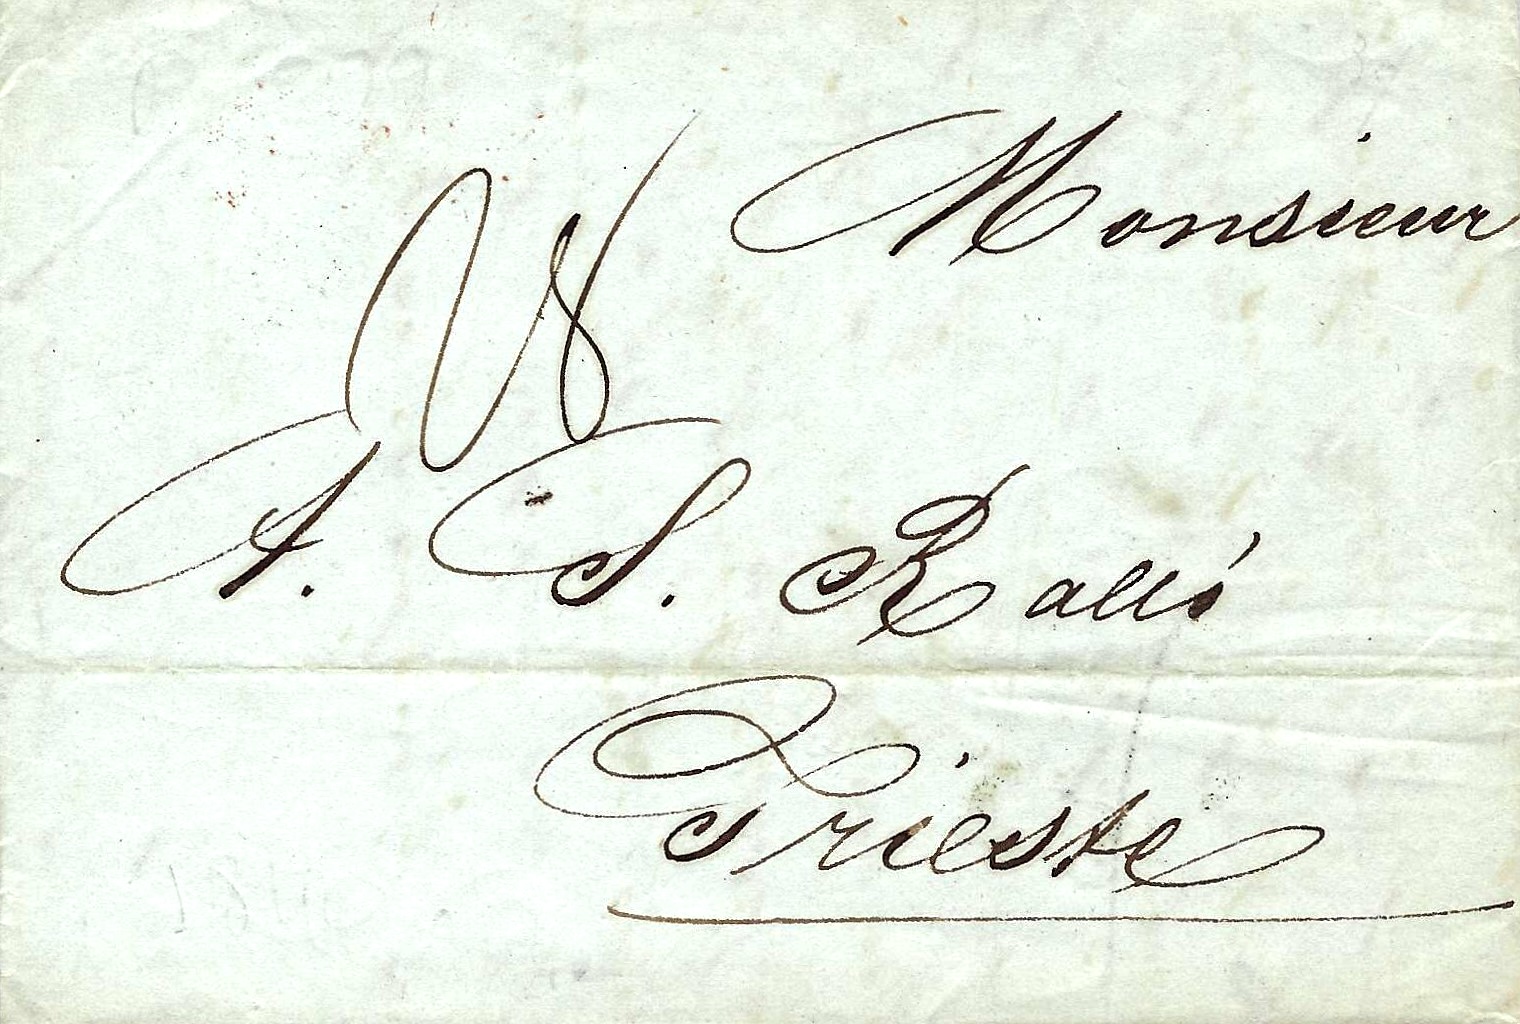 Monsieur
A. S. Ralli
Trieste